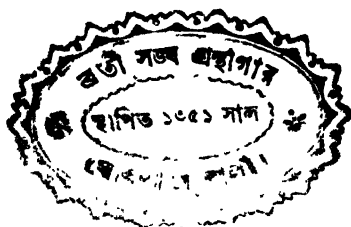 ব্রতী সঙ্ঘ গ্রন্থাগার
স্থাপিত ১৩৫১ সাল